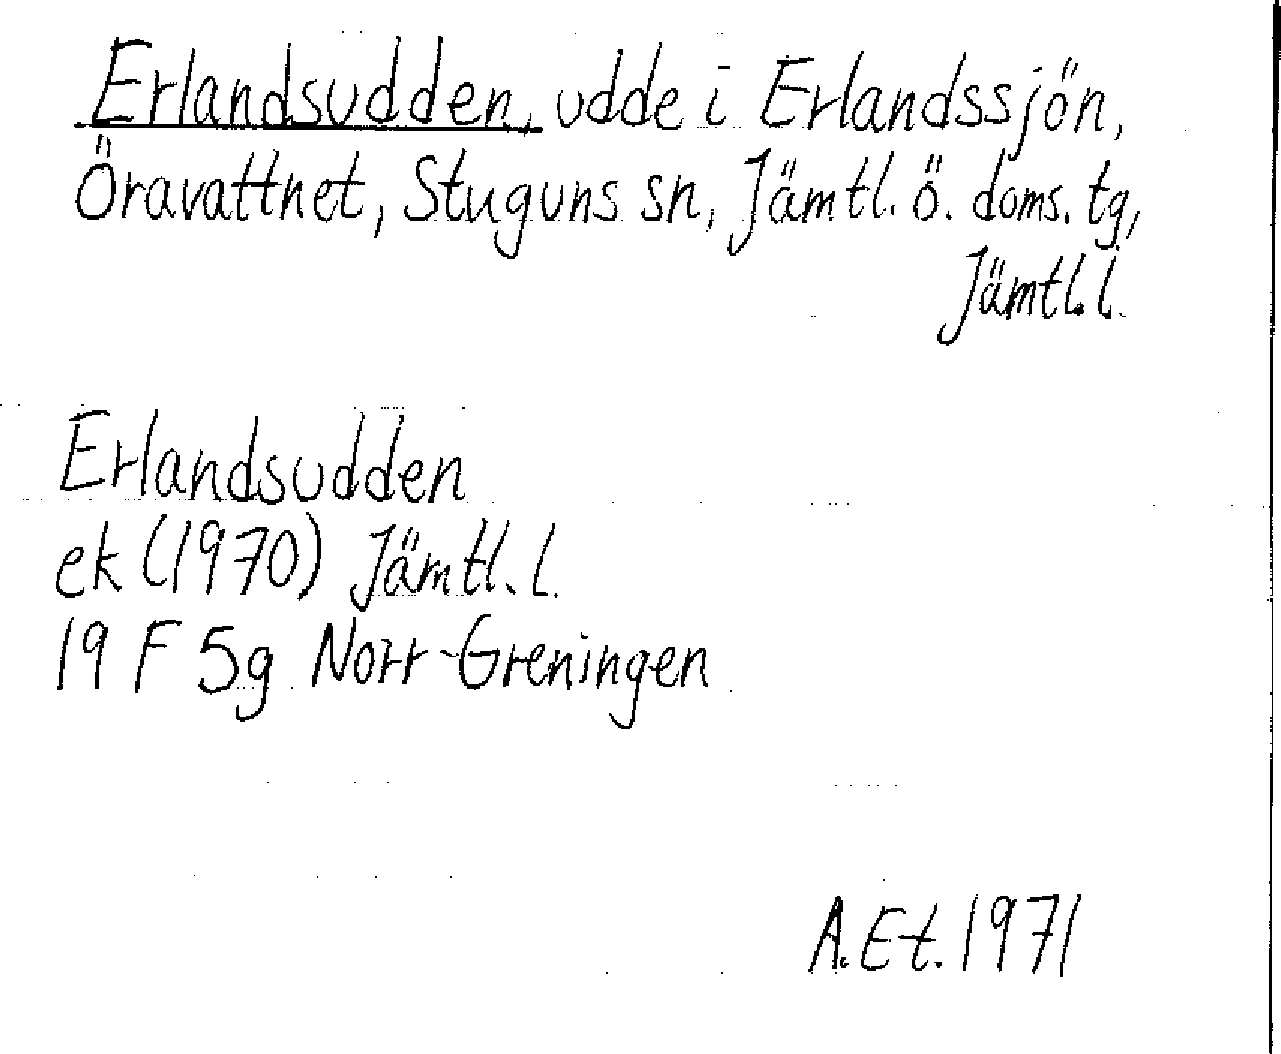 Erlandsudden, udde i Erlandssjön,
Öravattnet, Stuguns sn, Jämtl. ö. doms. tg,
Jämtl. l.
Erlandsudden
ek (1970) Jämtl. l.
19 F 5g Norr-Greningen
A.Et. 1971